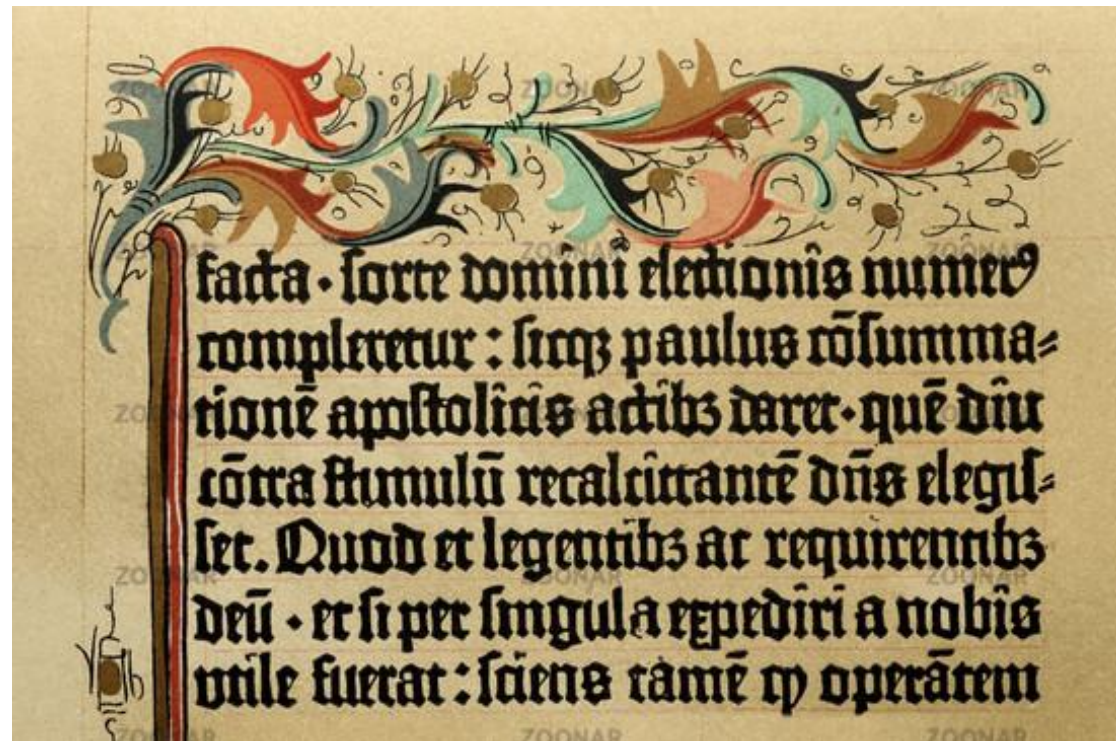 facta · sorte domini electionis numerꝰ
compleretur : sicqꝫ paulus cōsumma-
tionē apostolicis actibꝫ daret · quē diu
cōtra stimulū recalcitrantē dn̄s elegis-
set. Quod et legentibꝫ ac requirentibꝫ
deū · et si per singula expediri a nobis
utile fuerat : sciens tamē ꝙ operātem